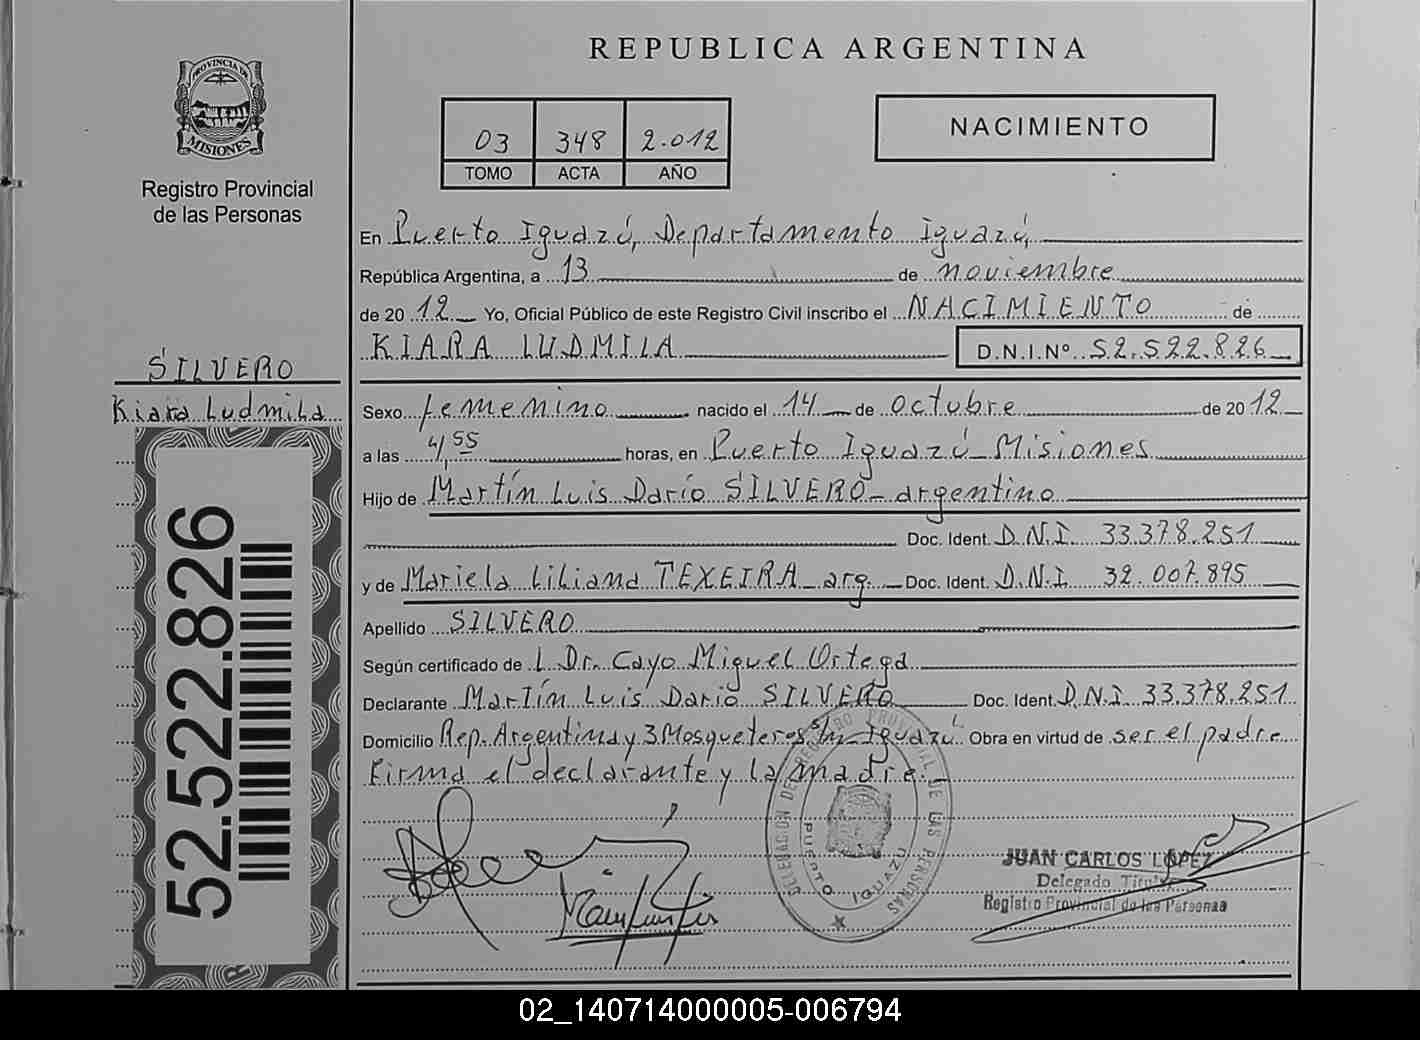 REPUBLICA ARGENTINA
PROVINCIA DE
MISIONES
Registro Provincial
de las Personas
03 348 2.012
TOMO ACTA AÑO
NACIMIENTO
En Puerto Iguazú, Departamento Iguazú,
República Argentina, a 13 de noviembre
de 2012 Yo, Oficial Público de este Registro Civil inscribo el NACIMIENTO de
KIARA LUDMILA D.N.I.Nº 52.522.826
SILVERO
Kiara Ludmila
Sexo femenino nacido el 14 de octubre de 2012
a las 4,55 horas, en Puerto Iguazú - Misiones
Hijo de Martín Luis Darío SILVERO - argentino
Doc. Ident. D.N.I. 33.378.251
y de Mariela Liliana TEXEIRA - arg. - Doc. Ident. D.N.I 32.007.895
Apellido SILVERO
Según certificado de L Dr. Cayo Miguel Ortega
Declarante Martín Luis Darío SILVERO Doc. Ident. D.N.I 33.378.251
Domicilio Rep. Argentina y 3 Mosqueteros s/n - Iguazú. Obra en virtud de ser el padre
Firma el declarante y la madre.-
52.522.826
DELEGACION DE REGISTRO PROVINCIAL DE LAS PERSONAS
PUERTO IGUAZU
JUAN CARLOS LOPEZ
Delegado Titular
Registro Provincial de las Personas
02_140714000005-006794